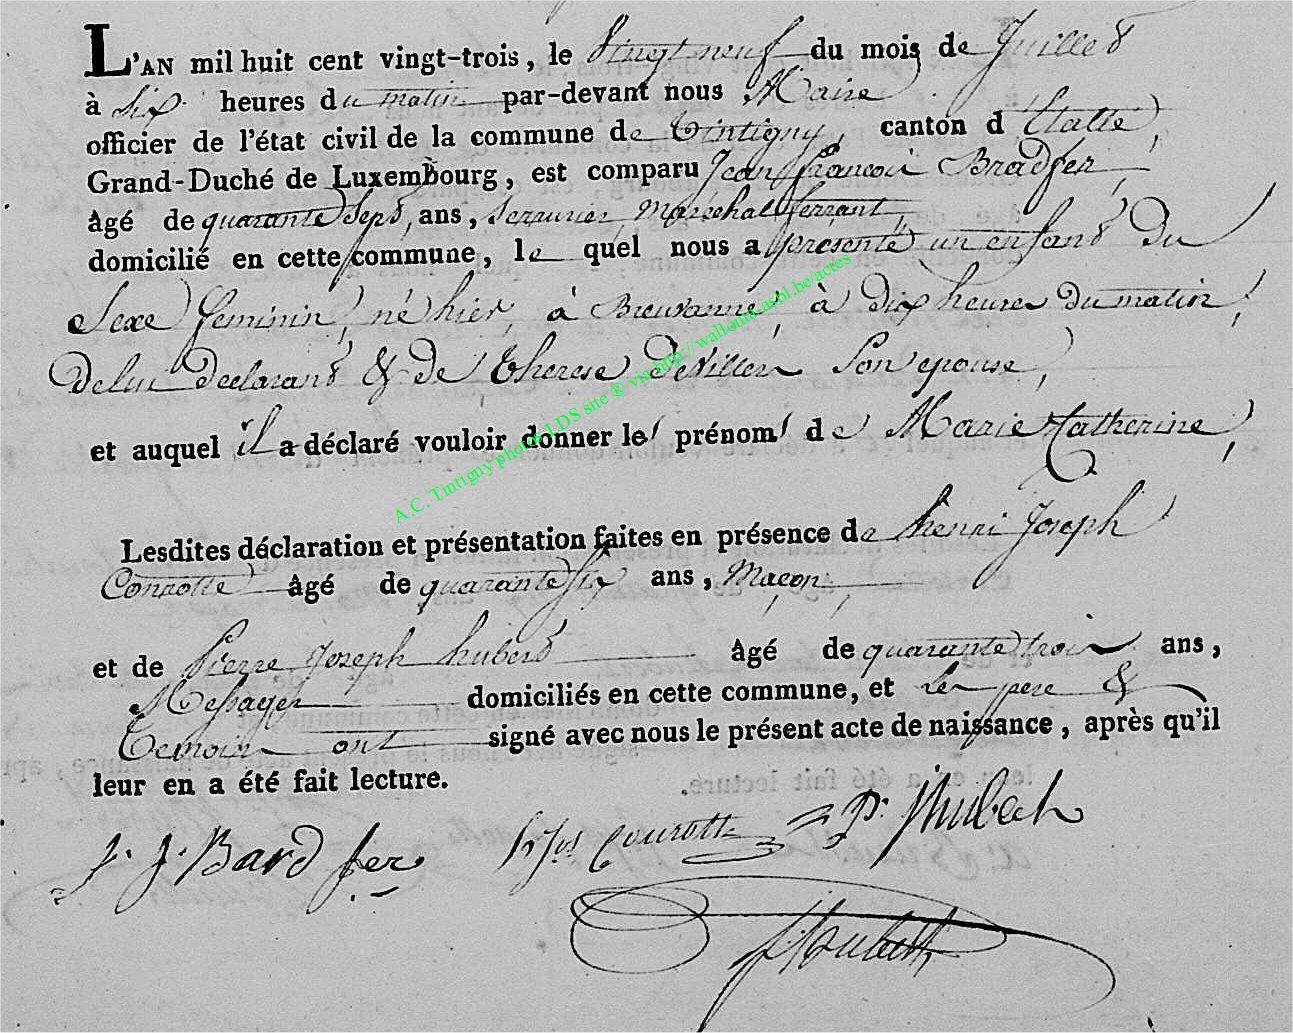 L'AN mil huit cent vingt-trois, le Vingt neuf du mois de Juillet
à Six heures du matin par-devant nous Maire
officier de l'état civil de la commune de Tintigny, canton d'Etalle,
Grand-Duché de Luxembourg, est comparu Jean françois Bradfer,
âgé de quarante Sept, ans, Serrurier, Maréchal ferrant,
domicilié en cette commune, le quel nous a présenté un enfant Du
Sexe feminin, né hier, à Breuvanne, à dix heures Du matin,
De lui declarant & de Therese Devillers Son epouse,
et auquel il a déclaré vouloir donner les prénoms de Marie Catherine,
A.C. Tintigny photos LDS site ® via http://wallonia.asbl.be/actes
Lesdites déclaration et présentation faites en présence de henri Joseph
Conrotte âgé de quarante Six ans, Maçon,
et de Pierre Joseph hubert âgé de quarante trois ans,
Messager domiciliés en cette commune, et les pere &
Temoins ont signé avec nous le présent acte de naissance, après qu'il
leur en a été fait lecture.
J. f. Bard fer h Jos Courotte P. J hubert
Hubert